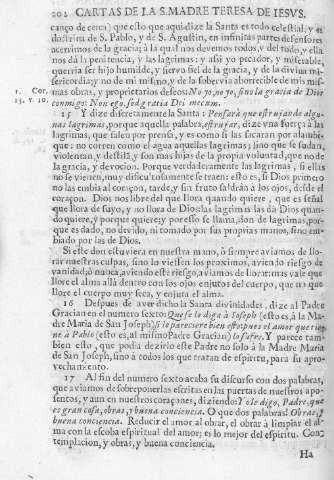 202 CARTAS DE LA S. MADRE TERESA DE IESVS.
canço de cerca) que esto que aqui dize la Santa es todo celestial, y es
doctrina de S. Pablo, y de S. Agustin, en infinitas partes defensores
acerrimos de la gracia; à la qual nos devemos todos, y del todo, y ella
nos dà la penitencia, y las lagrimas: y assi yo pecador, y miserable,
querria ser hijo humilde, y siervo fiel de la gracia, y de la divina mi-
sericordia; y no de mi mismo, y de la sobervia aborrecible de mis mis-
1. Cor.
15. v. 10.
mas obras, y proprietarios deseos: No yo, no yo, sino la gracia de Dios
conmigo: Non ego, sed gratia Dei mecum.
15 Y dize discretamente la Santa: Pensarà que estrujar de algu-
nas lagrimas, porque aquella palabra, estrujar, dize vna fuerça a las
lagrimas, que salen por prensa, y es como si las sacaran por alambi-
que: no corren como el agua aquellas lagrimas; sino que se sudan,
violentan, y destilã, y son mas hijas de la propia voluntad, que no de
la gracia, y devocion. Porque verdaderamente las lagrimas, si ellas
no se vienen, muy dificultosamente se traen: esto es, si Dios primero
no las embia al coraçon, tarde, y sin fruto saldràn à los ojos, desde el
coraçon. Dios nos libre del que llora quando quiere, que es señal
que llora de suyo, y no llora de Dios: las lagrimas las dà Dios quan-
do quiere, y porque quiere; y por esso se llama, don de lagrimas, por-
que es dado, no devido, ni tomado por sus propias manos, sino em-
biado por las de Dios.
Si este don estuviera en nuestra mano, ò siempre aviamos de llo-
rar nuestras culpas, sino lo viessen los proximos, aviendo riesgo de
vanidad; ò nunca, aviendo este riesgo, aviamos de llorar: mas vale que
llore el alma allà dentro con los ojos enjutos del cuerpo, que no que
llore el cuerpo muy seca, y enjuta el alma.
16 Despues de aver dicho la Santa divinidades, dize al Padre
Gracian en el numero sexto: Que se lo diga à Ioseph (esto es, à la Ma-
dre Maria de San Joseph) si le pareciere bien
à Pablo (esto es, al mismo Padre Gracian) Y parece tam-
bien esto, que podia dezirlo este Padre no solo à la Madre Maria
de San Joseph, sino à todos los que tratan de espiritu, para su apro-
vechamiento.
17 Al fin del numero sexto acaba su discurso con dos palabras,
que aviamos de sobreponerlas escritas en las puertas de nuestros apo-
sentos, y aun en nuestros coraçones, diziendo: Yo le digo, Padre, que
es gran cosa, obras, y buena conciencia. O que dos palabras! Obras, y
buena conciencia. Reducir el amor al obrar, el obrar à limpiar el al-
ma con la escoba espiritual del amor; es lo mejor del espiritu. Con-
templacion, y obras, y buena conciencia.
Ha